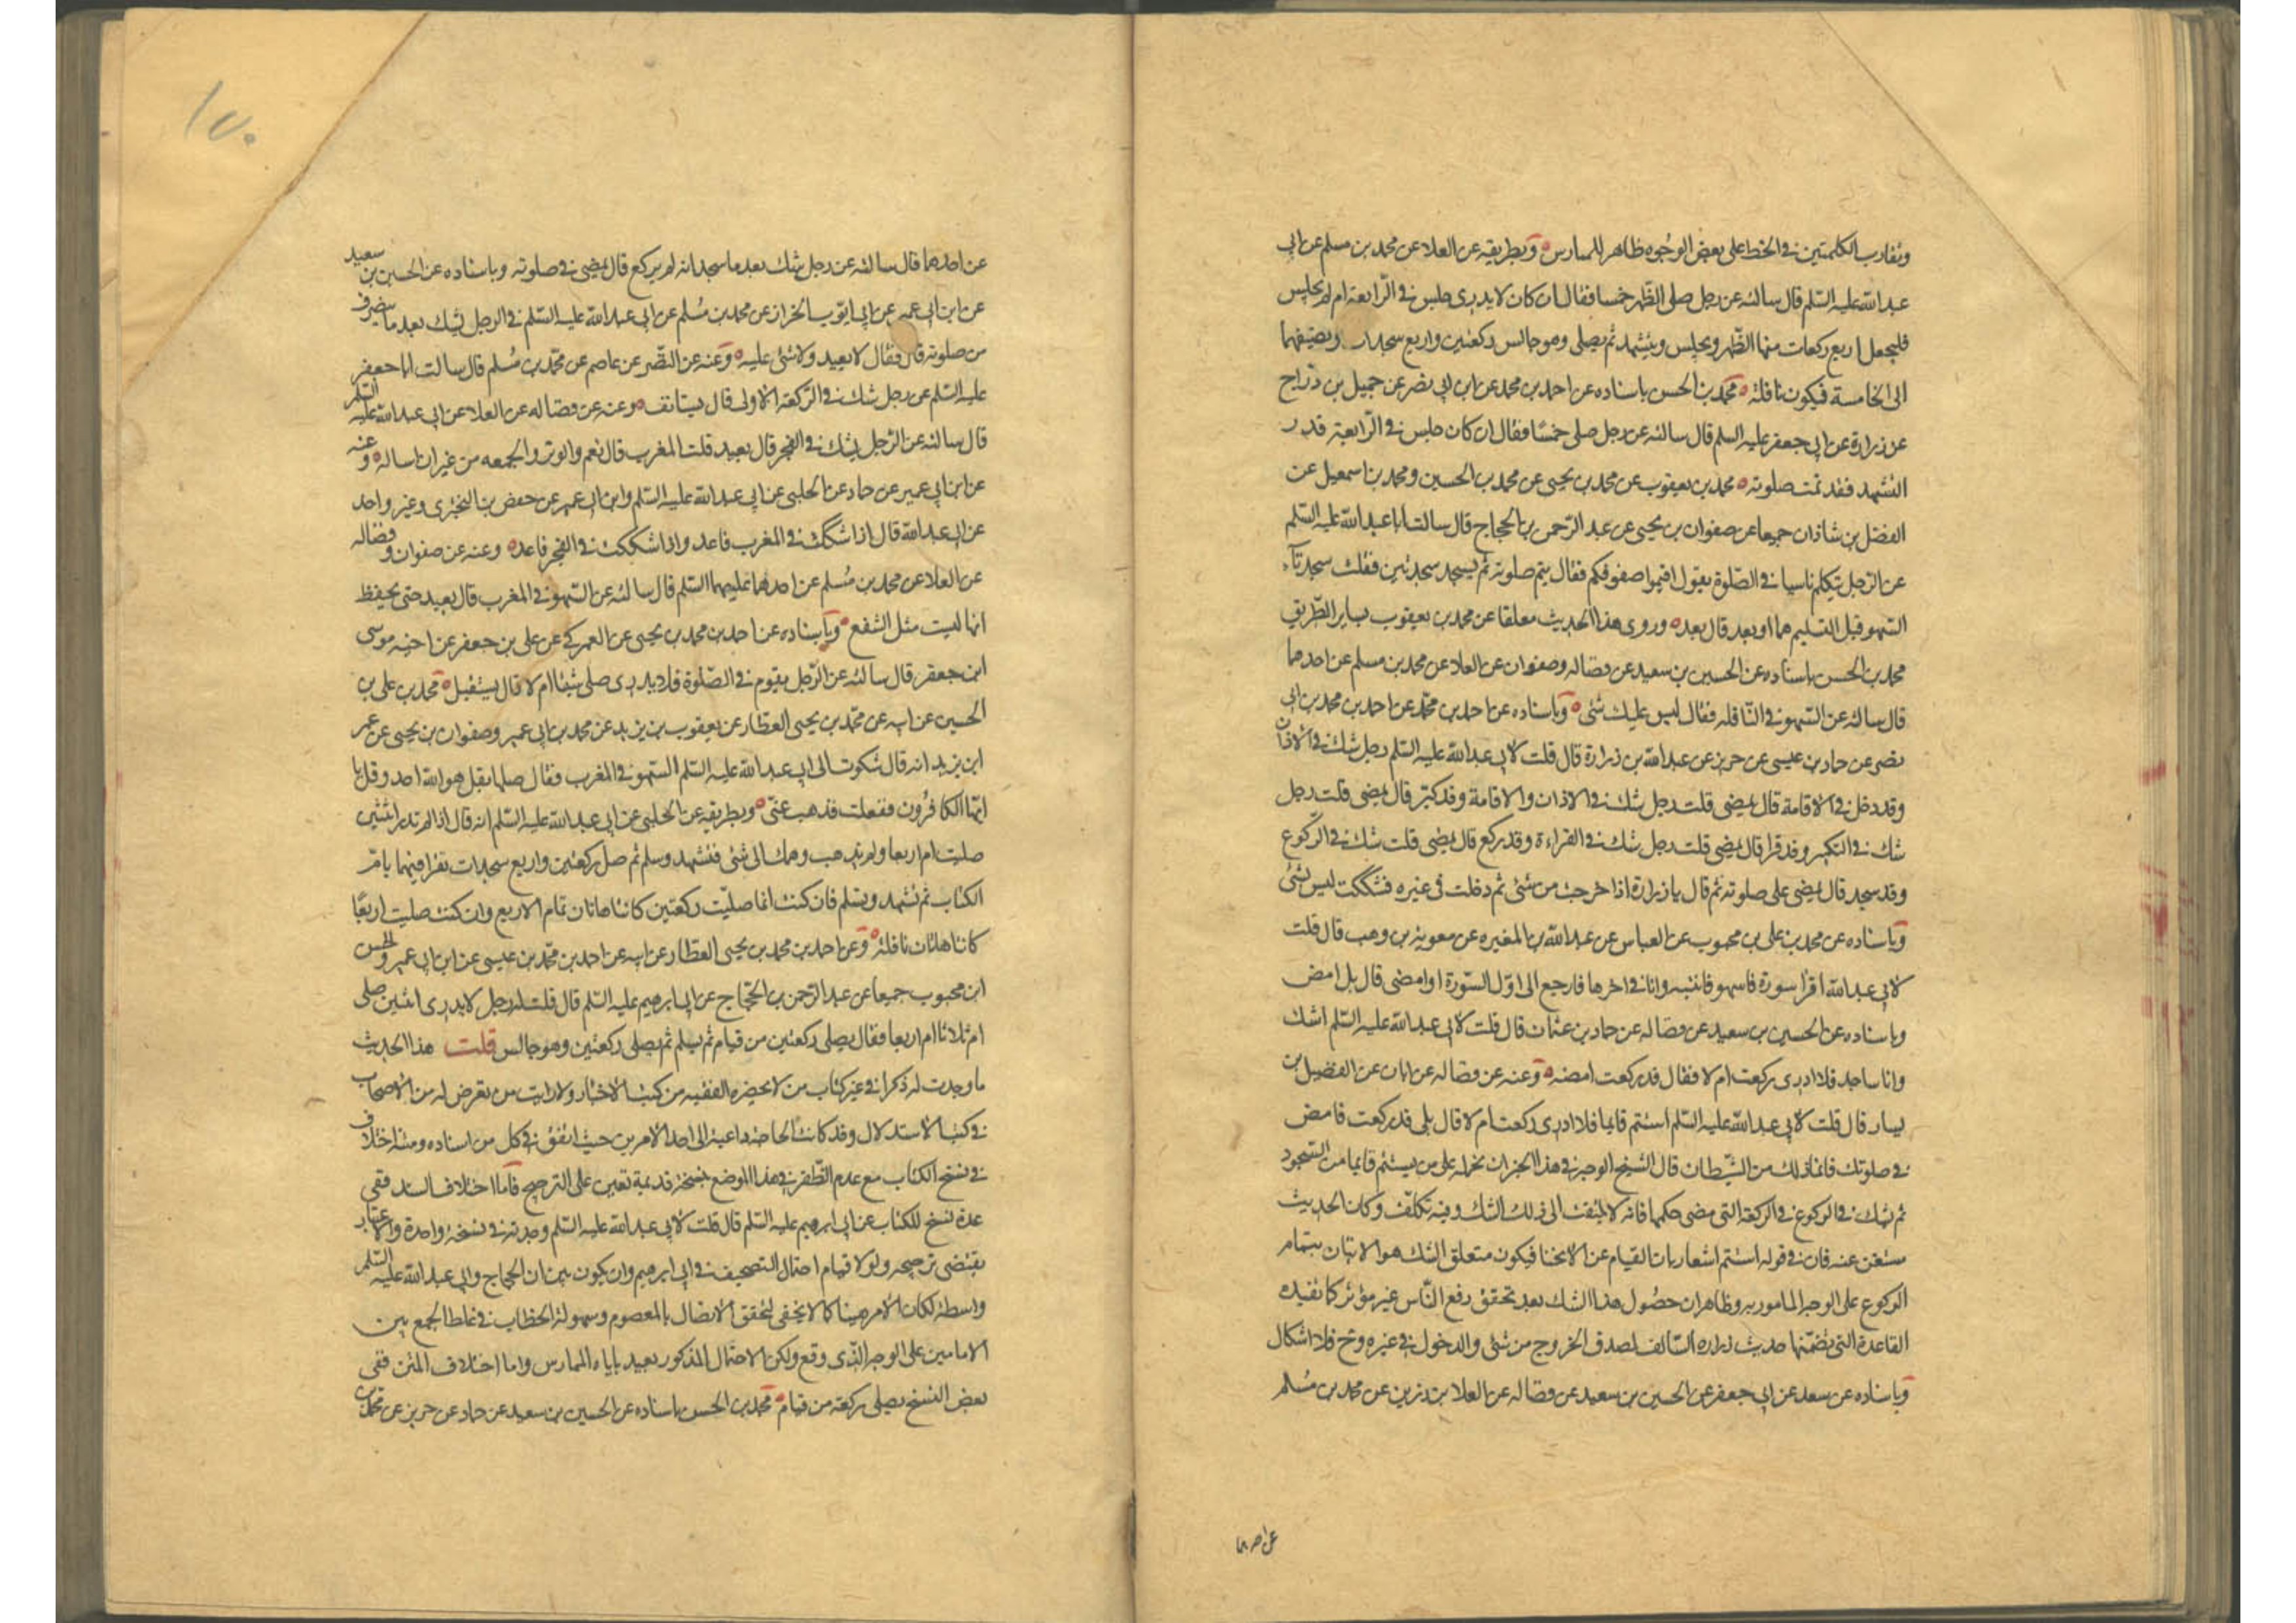 وتقارب الكلمتين في الخط على بعض الوجوه ظاهر للممارس وبطريقه عن العلا عن محمد بن مسلم عن ابي
عبد الله عليه السلم قال سالته عن رجل صلى الظهر خمسا فقال ان كان لا يدري جلس في الرابعة ام لم يجلس
فليجعل اربع ركعات منها الظهر ويجلس ويتشهد ثم يصلي وهو جالس ركعتين واربع سجدات ويضيفهما
الى الخامسة فيكون نافلة محمد بن الحسن باسناده عن احمد بن محمد عن ابن ابي نصر عن جميل بن دراج
عن زرارة عن ابي جعفر عليه السلم قال سالته عن رجل صلى خمسا فقال ان كان جلس في الرابعة قدر
التشهد فقد تمت صلوته محمد بن يعقوب عن محمد بن يحيى عن محمد بن الحسين ومحمد بن اسمعيل عن
الفضل بن شاذان جميعا عن صفوان بن يحيى عن عبد الرحمن بن الحجاج قال سالت ابا عبد الله عليه السلم
عن الرجل يتكلم ناسيا في الصلوة يقول اقيموا صفوفكم فقال يتم صلوته ثم يسجد سجدتين فقلت سجدتا
السهو قبل التسليم هما او بعد قال بعد وروى هذا الحديث معلقا عن محمد بن يعقوب بساير الطريق
محمد بن الحسن باسناده عن الحسين بن سعيد عن فضاله وصفوان عن العلا عن محمد بن مسلم عن احدهما
قال سالته عن السهو في النافله فقال ليس عليك شئ وباسناده عن احمد بن محمد عن احمد بن محمد بن ابي
نصر عن حماد بن عيسى عن حريز عن عبد الله بن زرارة قال قلت لابي عبد الله عليه السلم رجل شك في الاذان
وقد دخل في الاقامة قال يمضي قلت رجل شك في الاذان والاقامة وقد كبر قال يمضي قلت رجل
شك في التكبير وقد قرا قال يمضي قلت رجل شك في القراءة وقد ركع قال يمضى قلت شك في الركوع
وقد سجد قال يمضي على صلوته ثم قال يا زرارة اذا خرجت من شئ ثم دخلت في غيره فشككت ليس بشئ
وباسناده عن محمد بن علي بن محبوب عن العباس عن عبد الله بن المغيره عن معوية بن وهب قال قلت
لابي عبد الله اقرا سورة فاسهو فانتبه وانا في اخرها فارجع الى اول السورة او امضى قال بل امض
وباسناده عن الحسين بن سعيد عن فضاله عن حماد بن عثمان قال قلت لابي عبد الله عليه السلم اشك
وانا ساجد فلا ادري ركعت ام لا فقال قد ركعت امضه وعنه عن فضاله عن ابان عن الفضيل بن
يسار قال قلت لابي عبد الله عليه السلم استتم قايما فلا ادري ركعت ام لا قال بلى قد ركعت فامض
في صلوتك فانما ذلك من الشيطان قال الشيخ الوجه في هذا الخبر ان نحمله على من يستتم قايما من السجود
ثم شك في الركوع في الركعة التي مضى حكمها فانه لا يلتفت الى ذلك الشك وفيه تكلف وكان الحديث
مستغن عنه فان في قوله استتم اشعار بان القيام عن الانحنا فيكون متعلق الشك هو الاتيان بتمام
الركوع على الوجه المامور به وظاهر ان حصول هذا الشك بعد تحقق رفع الناس غير مؤثر كما تفيده
القاعدة التي تضمنها حديث زراره السالف لصدق الخروج من شئ والدخول في غيره وح فلا اشكال
وباسناده عن سعد عن ابي جعفر عن الحسين بن سعيد عن فضاله عن العلا بن رزين عن محمد بن مسلم
عن احدهما
١٧٠
عن احدهما قال سالته عن رجل شك بعد ما سجد انه لم يركع قال يمضي في صلوته وباسناده عن الحسين بن سعيد
عن ابن ابي عمير عن ابي ايوب الخزاز عن محمد بن مسلم عن ابي عبد الله عليه السلم في الرجل يشك بعد ما ينصرف
من صلوته قال فقال لا يعيد ولا شئ عليه وعنه عن النضر عن عاصم عن محمد بن مسلم قال سالت ابا جعفر
عليه السلم عن رجل شك في الركعة الاولى قال يستانف وعنه عن فضاله عن العلا عن ابي عبد الله عليه السلم
قال سالته عن الرجل يشك في الفجر قال يعيد قلت المغرب قال نعم والوتر والجمعه من غير ان اساله وعنه
عن ابن ابي عمير عن حماد عن الحلبي عن ابي عبد الله عليه السلم وابن ابي عمير عن حفص بن البختري وغير واحد
عن ابي عبد الله قال اذا شككت في المغرب فاعد واذا شككت في الفجر فاعد وعنه عن صفوان وفضاله
عن العلا عن محمد بن مسلم عن احدهما عليهما السلم قال سالته عن السهو في المغرب قال يعيد حتى يحفظ
انها ليست مثل الشفع وباسناده عن احمد بن محمد بن يحيى عن العمركي عن علي بن جعفر عن اخيه موسى
ابن جعفر قال سالته عن الرجل يقوم في الصلوة فلا يدري صلى شيئا ام لا قال يستقبل محمد بن علي بن
الحسين عن ابيه عن محمد بن يحيى العطار عن يعقوب بن يزيد عن محمد بن ابي عمير وصفوان بن يحيى عن عمر
ابن يزيد انه قال شكوت الى ابي عبد الله عليه السلم السهو في المغرب فقال صلها بقل هو الله احد وقل يا
ايها الكافرون ففعلت فذهب عني وبطريقه عن الحلبي عن ابي عبد الله عليه السلم انه قال اذا لم تدر اثنتين
صليت ام اربعا ولم يذهب وهمك الى شئ فتشهد وسلم ثم صل ركعتين واربع سجدات تقرا فيهما بام
الكتاب ثم تشهد وتسلم فان كنت انما صليت ركعتين كانتا هاتان تمام الاربع وان كنت صليت اربعا
كانتا هاتان نافلة وعن احمد بن محمد بن يحيى العطار عن ابيه عن احمد بن محمد بن عيسى عن ابن ابي عمير والحسن
ابن محبوب جميعا عن عبد الرحمن بن الحجاج عن ابي ابرهيم عليه السلم قال قلت له رجل لا يدري اثنتين صلى
ام ثلاثا ام اربعا فقال يصلي ركعتين من قيام ثم يسلم ثم يصلي ركعتين وهو جالس قلت هذا الحديث
ما وجدت له ذكرا في غير كتاب من لا يحضره الفقيه من كتب الاخبار ولا رايت من تعرض له من الاصحاب
في كتب الاستدلال وقد كانت الحاجة داعية الى احد الامرين حيث اتفق في كل من اسناده ومتنه اختلاف
في نسخ الكتاب مع عدم الظفر في هذا الموضع بنسخة قديمة تعين على الترجيح فاما اختلاف السند ففي
عدة نسخ للكتاب عن ابي ابرهيم عليه السلم قال قلت لابي عبد الله عليه السلم وجدته في نسخة واحدة والاعتبار
يقتضي ترجيحه ولولا قيام احتمال التصحيف في ابي ابرهيم وان يكون بين ابن الحجاج وابي عبد الله عليه السلم
واسطة لكان الامر هينا كما لا يخفى لتحقق الاتصال بالمعصوم وسهولة الخطاب في غلط الجمع بين
الامامين على الوجه الذي وقع ولكن الاحتمال المذكور بعيد ياباه الممارس واما اختلاف المتن ففي
بعض النسخ يصلي ركعة من قيام محمد بن الحسن باسناده عن الحسين بن سعيد عن حماد عن حريز عن محمد بن